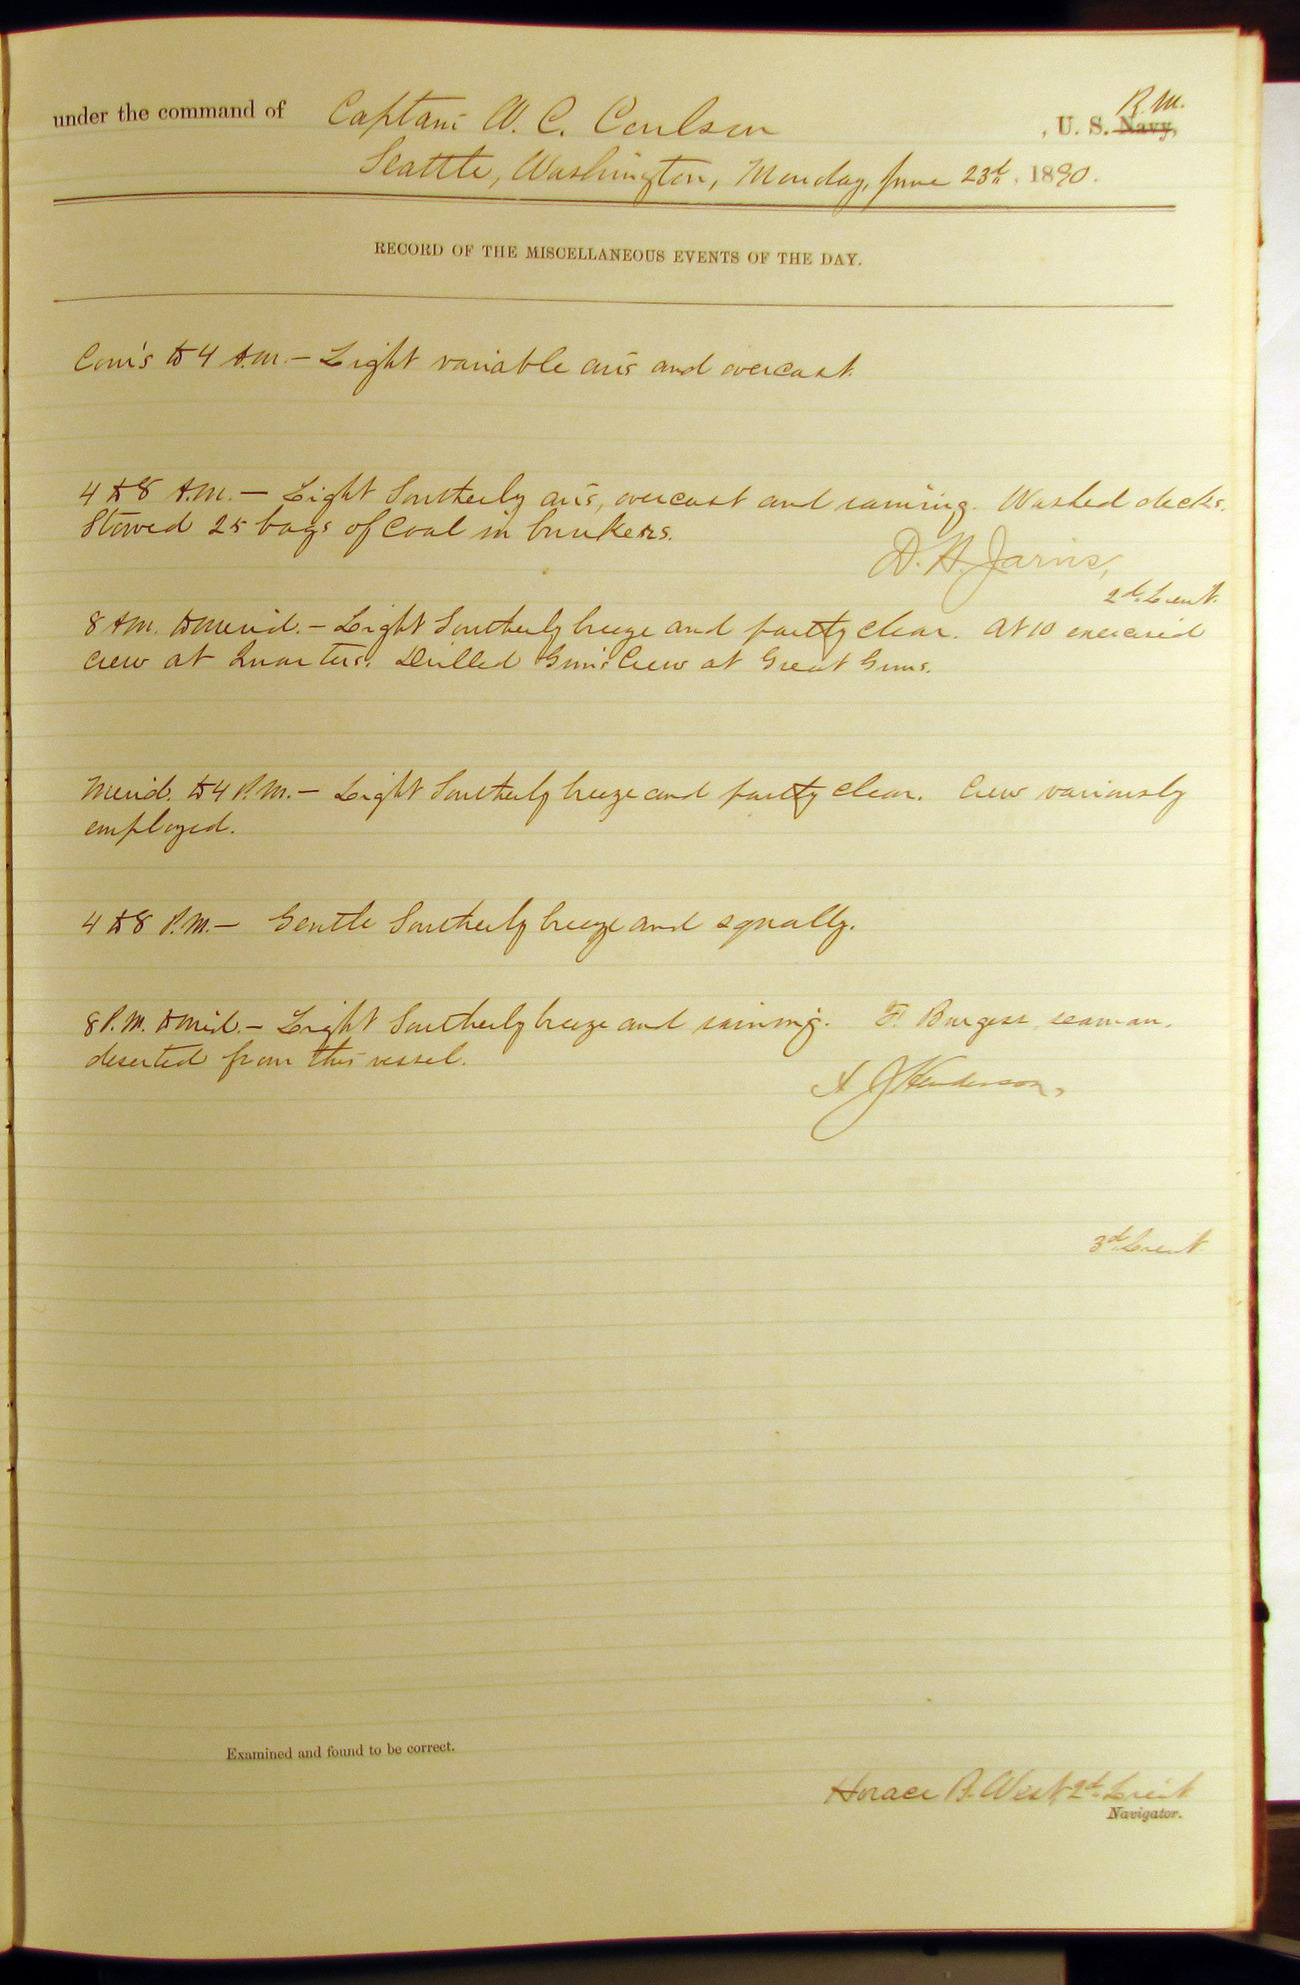 under the command of Captain W. C. Coulson , U. S. Navy, R. M.
Seattle, Washington, Monday, June 23d, 1890.
RECORD OF THE MISCELLANEOUS EVENTS OF THE DAY.
Com's to 4 A.M. — Light variable airs and overcast.
4 to 8 A.M. — Light Southerly airs, overcast and raining. Washed decks.
Stowed 25 bags of coal in bunkers.
D. H. Jarvis,
2d Lieut.
8 A.M. to merid. — Light Southerly breeze and partly clear. At 10 exercised
crew at Quarters. Drilled Gun's Crew at Great Guns.
Merid. to 4 P.M. — Light Southerly breeze and partly clear. Crew variously
employed.
4 to 8 P.M. — Gentle Southerly breeze and squally.
8 P.M. to mid. — Light Southerly breeze and raining. F. Burgess, seaman,
deserted from this vessel.
A J Henderson,
3d Lieut
Examined and found to be correct.
Horace B. West, 2d Lieut
Navigator.